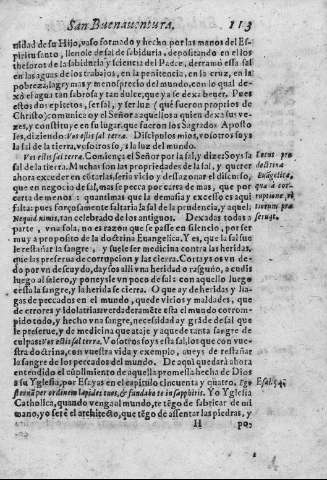 San Buenauentura. 113
nidad de su Hijo, vaso formado y hecho por las manos del Es-
piritu santo, llenole de sal de sabiduria, depositando en el los
thesoros de la sabiduria y sciencia del Padre, derramò essa sal
en las aguas de los trabajos, en la penitencia, en la cruz, en la
pobreza, lagrymas y menosprecio del mundo, con lo qual de-
xò el agua tan sabrosa y tan dulce, que ya se dexa beuer. Pues
estos dos epitetos, ser sal, y ser luz (que fueron proprios de
Christo) comunica oy el Señor a aquellos a quien dexa sus ve-
zes, y constituye en su lugar, que fueron los Sagrados Aposto
les, diziendo: Vos estis sal terræ. Discipulos mios, vosotros soys
la sal de la tierra, vosotros soys la luz del mundo.
Vos estis sal terræ. Comiença el Señor por la sal, y dize: Soys la
sal de la tierra. Muchas son las propriedades de la sal, y querer
ahora exceder en cõtarlas, seria vicio y desazonar el discurso,
que en negocio de sal, mas se pecca por carta de mas, que por
carta de menos: quanto mas que la demasia y excesso es aqui
falta: pues forçosamente faltaria la sal de la prudencia, y aquel:
Nequid nimis, tan celebrado de los antiguos. Dexadas todas a
parte, vna sola, no es razon que se passe en silencio, por ser
muy a proposito de la doctrina Euangelica. Y es, que la sal sue
le restañar la sangre, y suele ser medicina contra las heridas,
que las preserua de corrupcion y las cierra. Cortays os vn de-
do por vn descuydo, days os alli vna heridad o rasguño, acudis
luego al salero, y poneys le vn poco de sal: con aquello luego
essa la sangre, y la herida se cierra. O que ay de heridas y lla-
gas de peccados en el mundo, que de vicios y maldades, que
de errores y idolatrias: verdaderamẽte esta el mundo corrom-
pido todo, y hecho vna sangre, necessidad ay grãde de sal que
le preserue, y de medicina que ataje y aquede tanta sangre de
culpas: Vos estis sal terræ. Vosotros soys essa sal, los que con vue-
stra doctrina, con vuestra vida y exemplo, aueys de restañar
la sangre de los peccados del mundo. De aqui quedarà ahora
entendido el cũplimiento de aquella promessa hecha de Dios
a su Yglesia, por Esayas en el capitulo cincuenta y quatro. Ego
sternã per ordinem lapides tuos, & fundabo te in sapphiris. Yo Yglesia
Catholica, quando venga al mundo, te tẽgo de fabricar de mi
mano, yo serè el architecto, que tẽgo de assentar las piedras, y
H
por
Euãgelica,
Esai. 54.